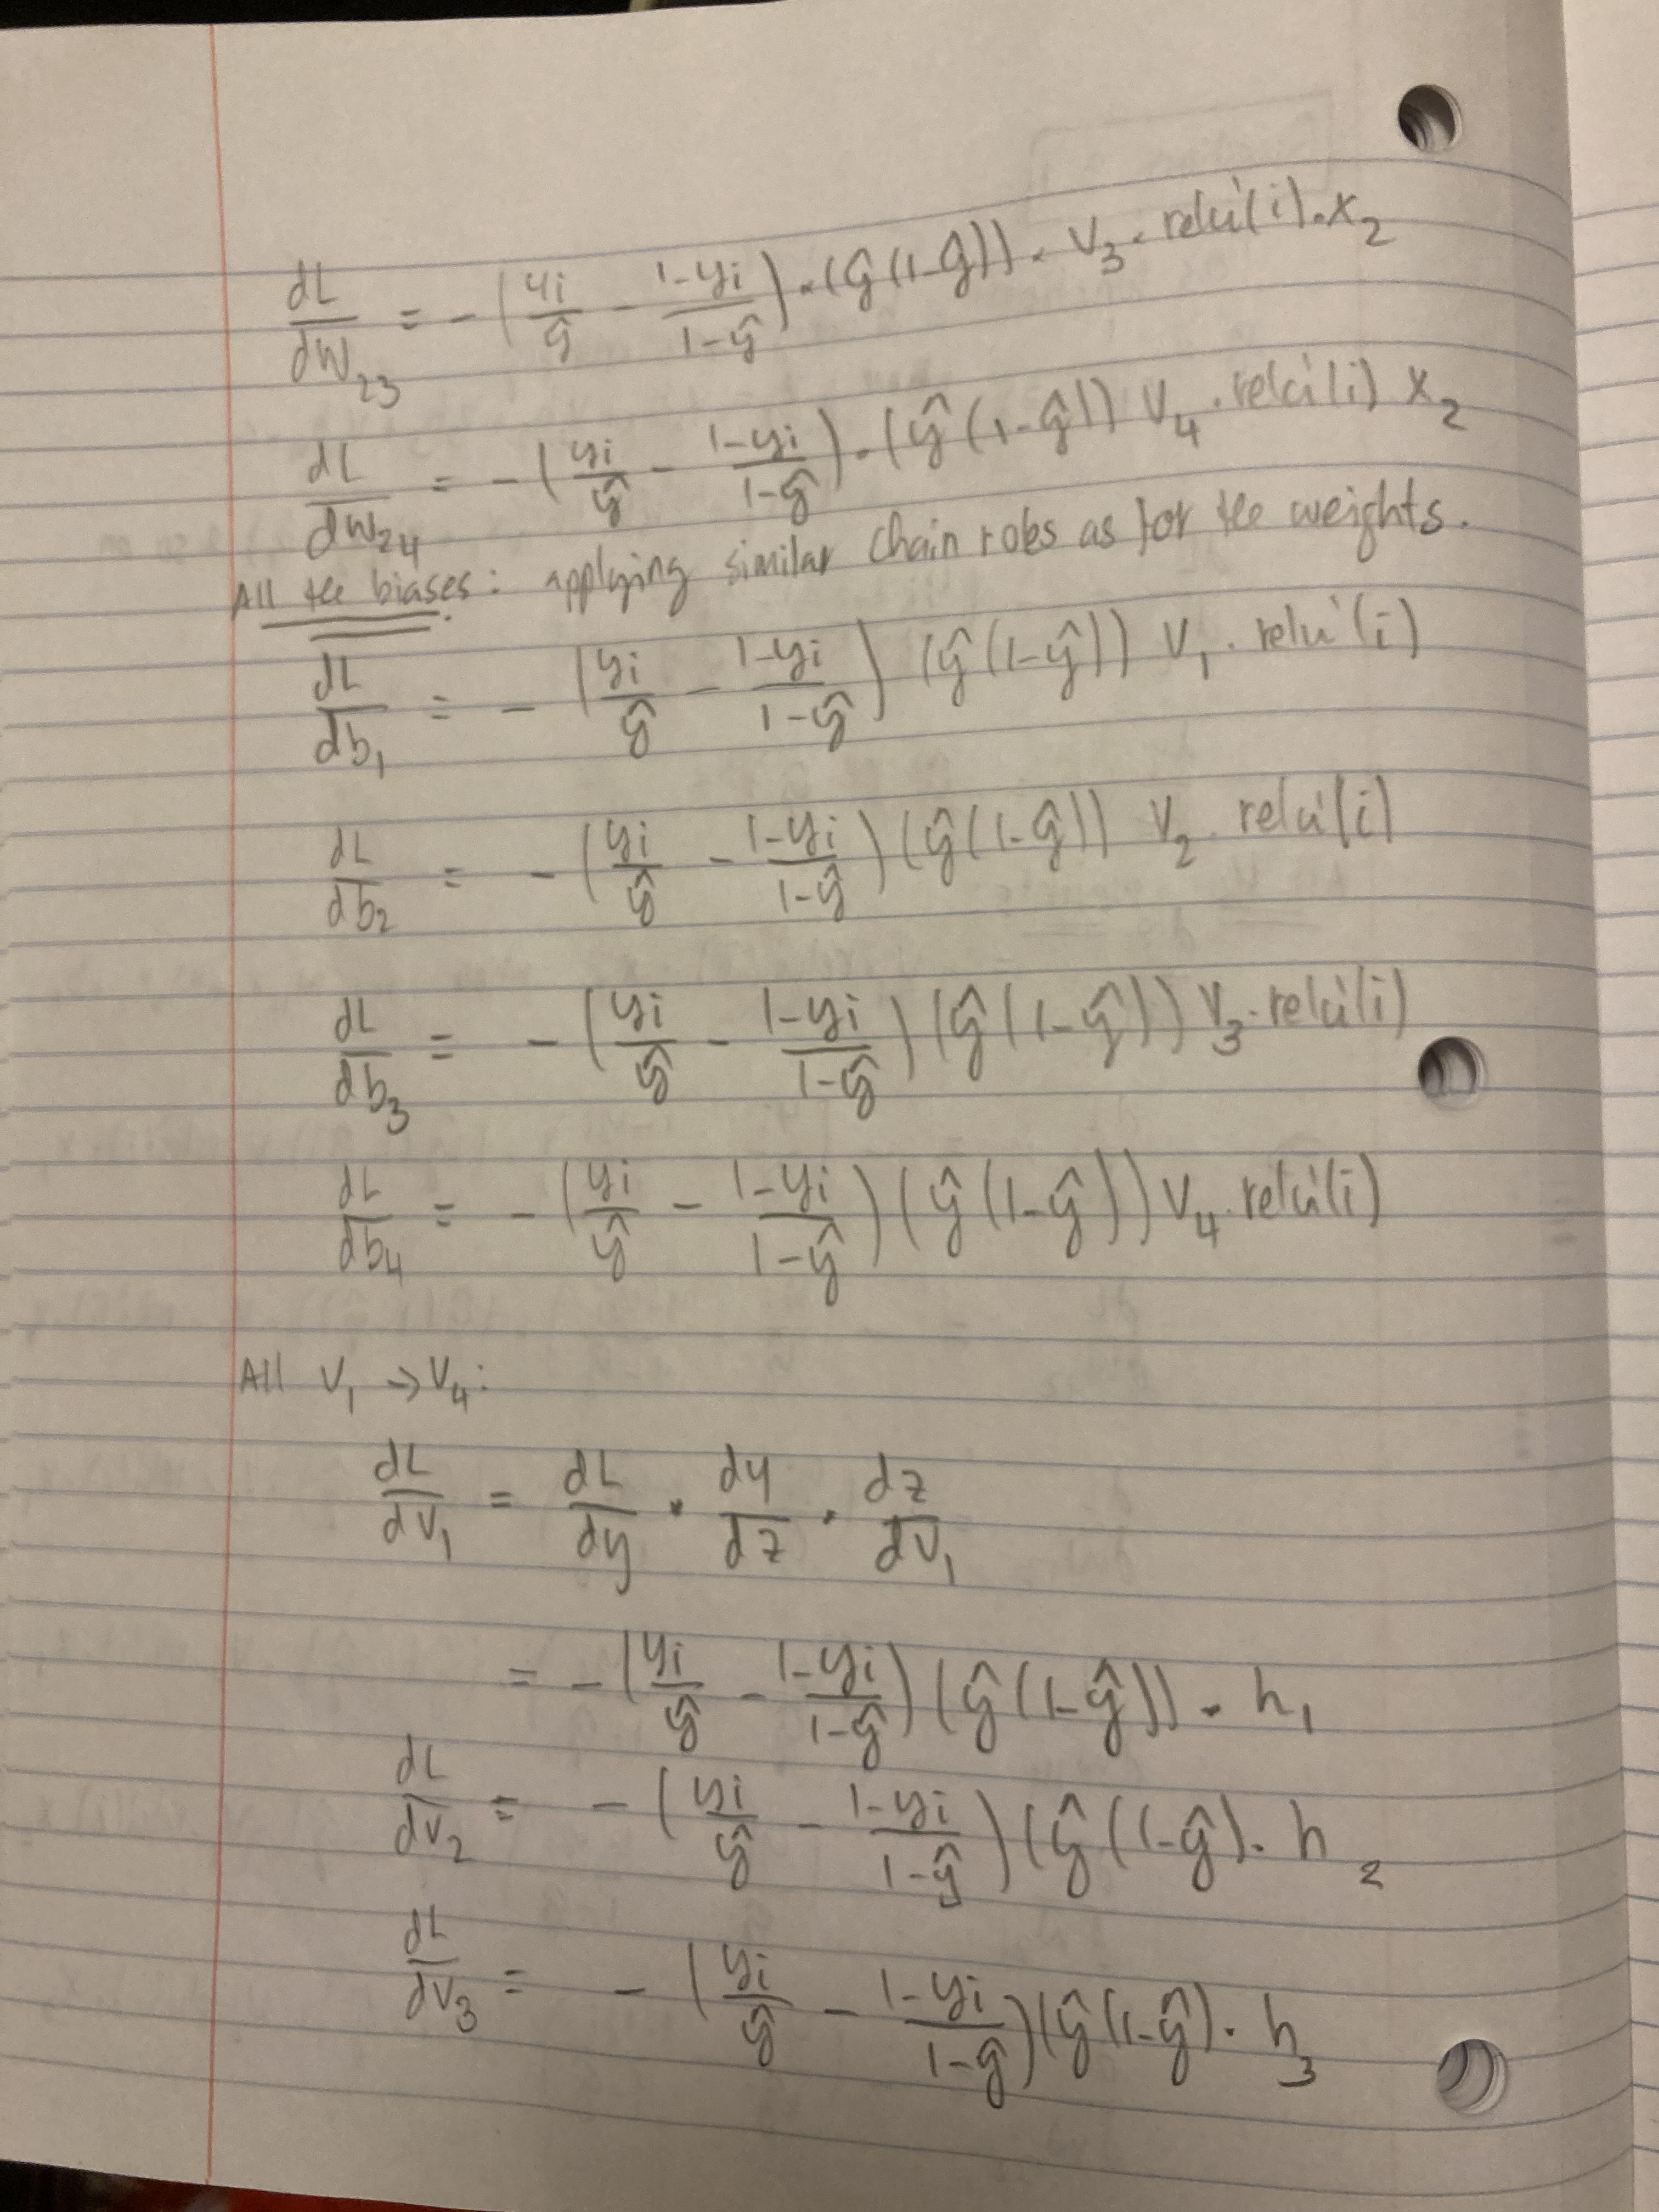 dL/dW₂₃ = -(yi/ŷ - 1-yi/1-ŷ)·(ŷ(1-ŷ))· V₃· relu'(i)·X₂
dL/dW₂₄ = -(yi/ŷ - 1-yi/1-ŷ)·(ŷ(1-ŷ)) V₄ · relu'(i) X₂
All the biases: applying similar chain roles as for the weights.
dL/db₁ = -(yi/ŷ - 1-yi/1-ŷ) (ŷ(1-ŷ)) V₁ · relu'(i)
dL/db₂ = -(yi/ŷ - 1-yi/1-ŷ)(ŷ(1-ŷ)) V₂ · relu'(i)
dL/db₃ = -(yi/ŷ - 1-yi/1-ŷ)(ŷ(1-ŷ)) V₃· relu'(i)
dL/db₄ = -(yi/ŷ - 1-yi/1-ŷ)(ŷ(1-ŷ)) V₄· relu'(i)
All V₁ → V₄:
dL/dV₁ = dL/dy · dy/dz · dz/dV₁
= -(yi/ŷ - 1-yi/1-ŷ)(ŷ(1-ŷ)) · h₁
dL/dV₂ = -(yi/ŷ - 1-yi/1-ŷ)(ŷ(1-ŷ)· h₂
dL/dV₃ = -(yi/ŷ - 1-yi/1-ŷ)(ŷ(1-ŷ)· h₃